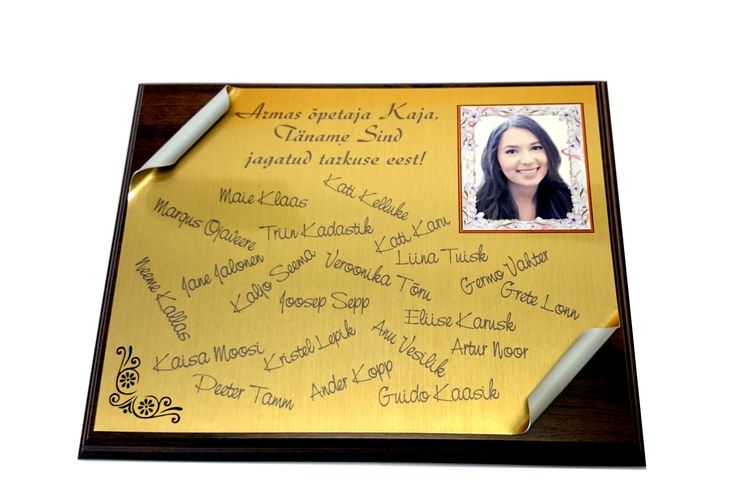 Armas õpetaja Kaja,
Täname Sind
jagatud tarkuse eest!
Maie Klaas
Kati Kelluke
Margus Ojaveere
Triin Kadastik
Kati Karu
Neeme Kallas
Jane Jalonen
Kaljo Seema
Veroonika Tõru
Liina Tuisk
Germo Vahter
Grete Lonn
Joosep Sepp
Eliise Karusk
Kaisa Moosi
Kristel Lepik
Anu Vesilik
Artur Noor
Peeter Tamm
Ander Kopp
Guido Kaasik